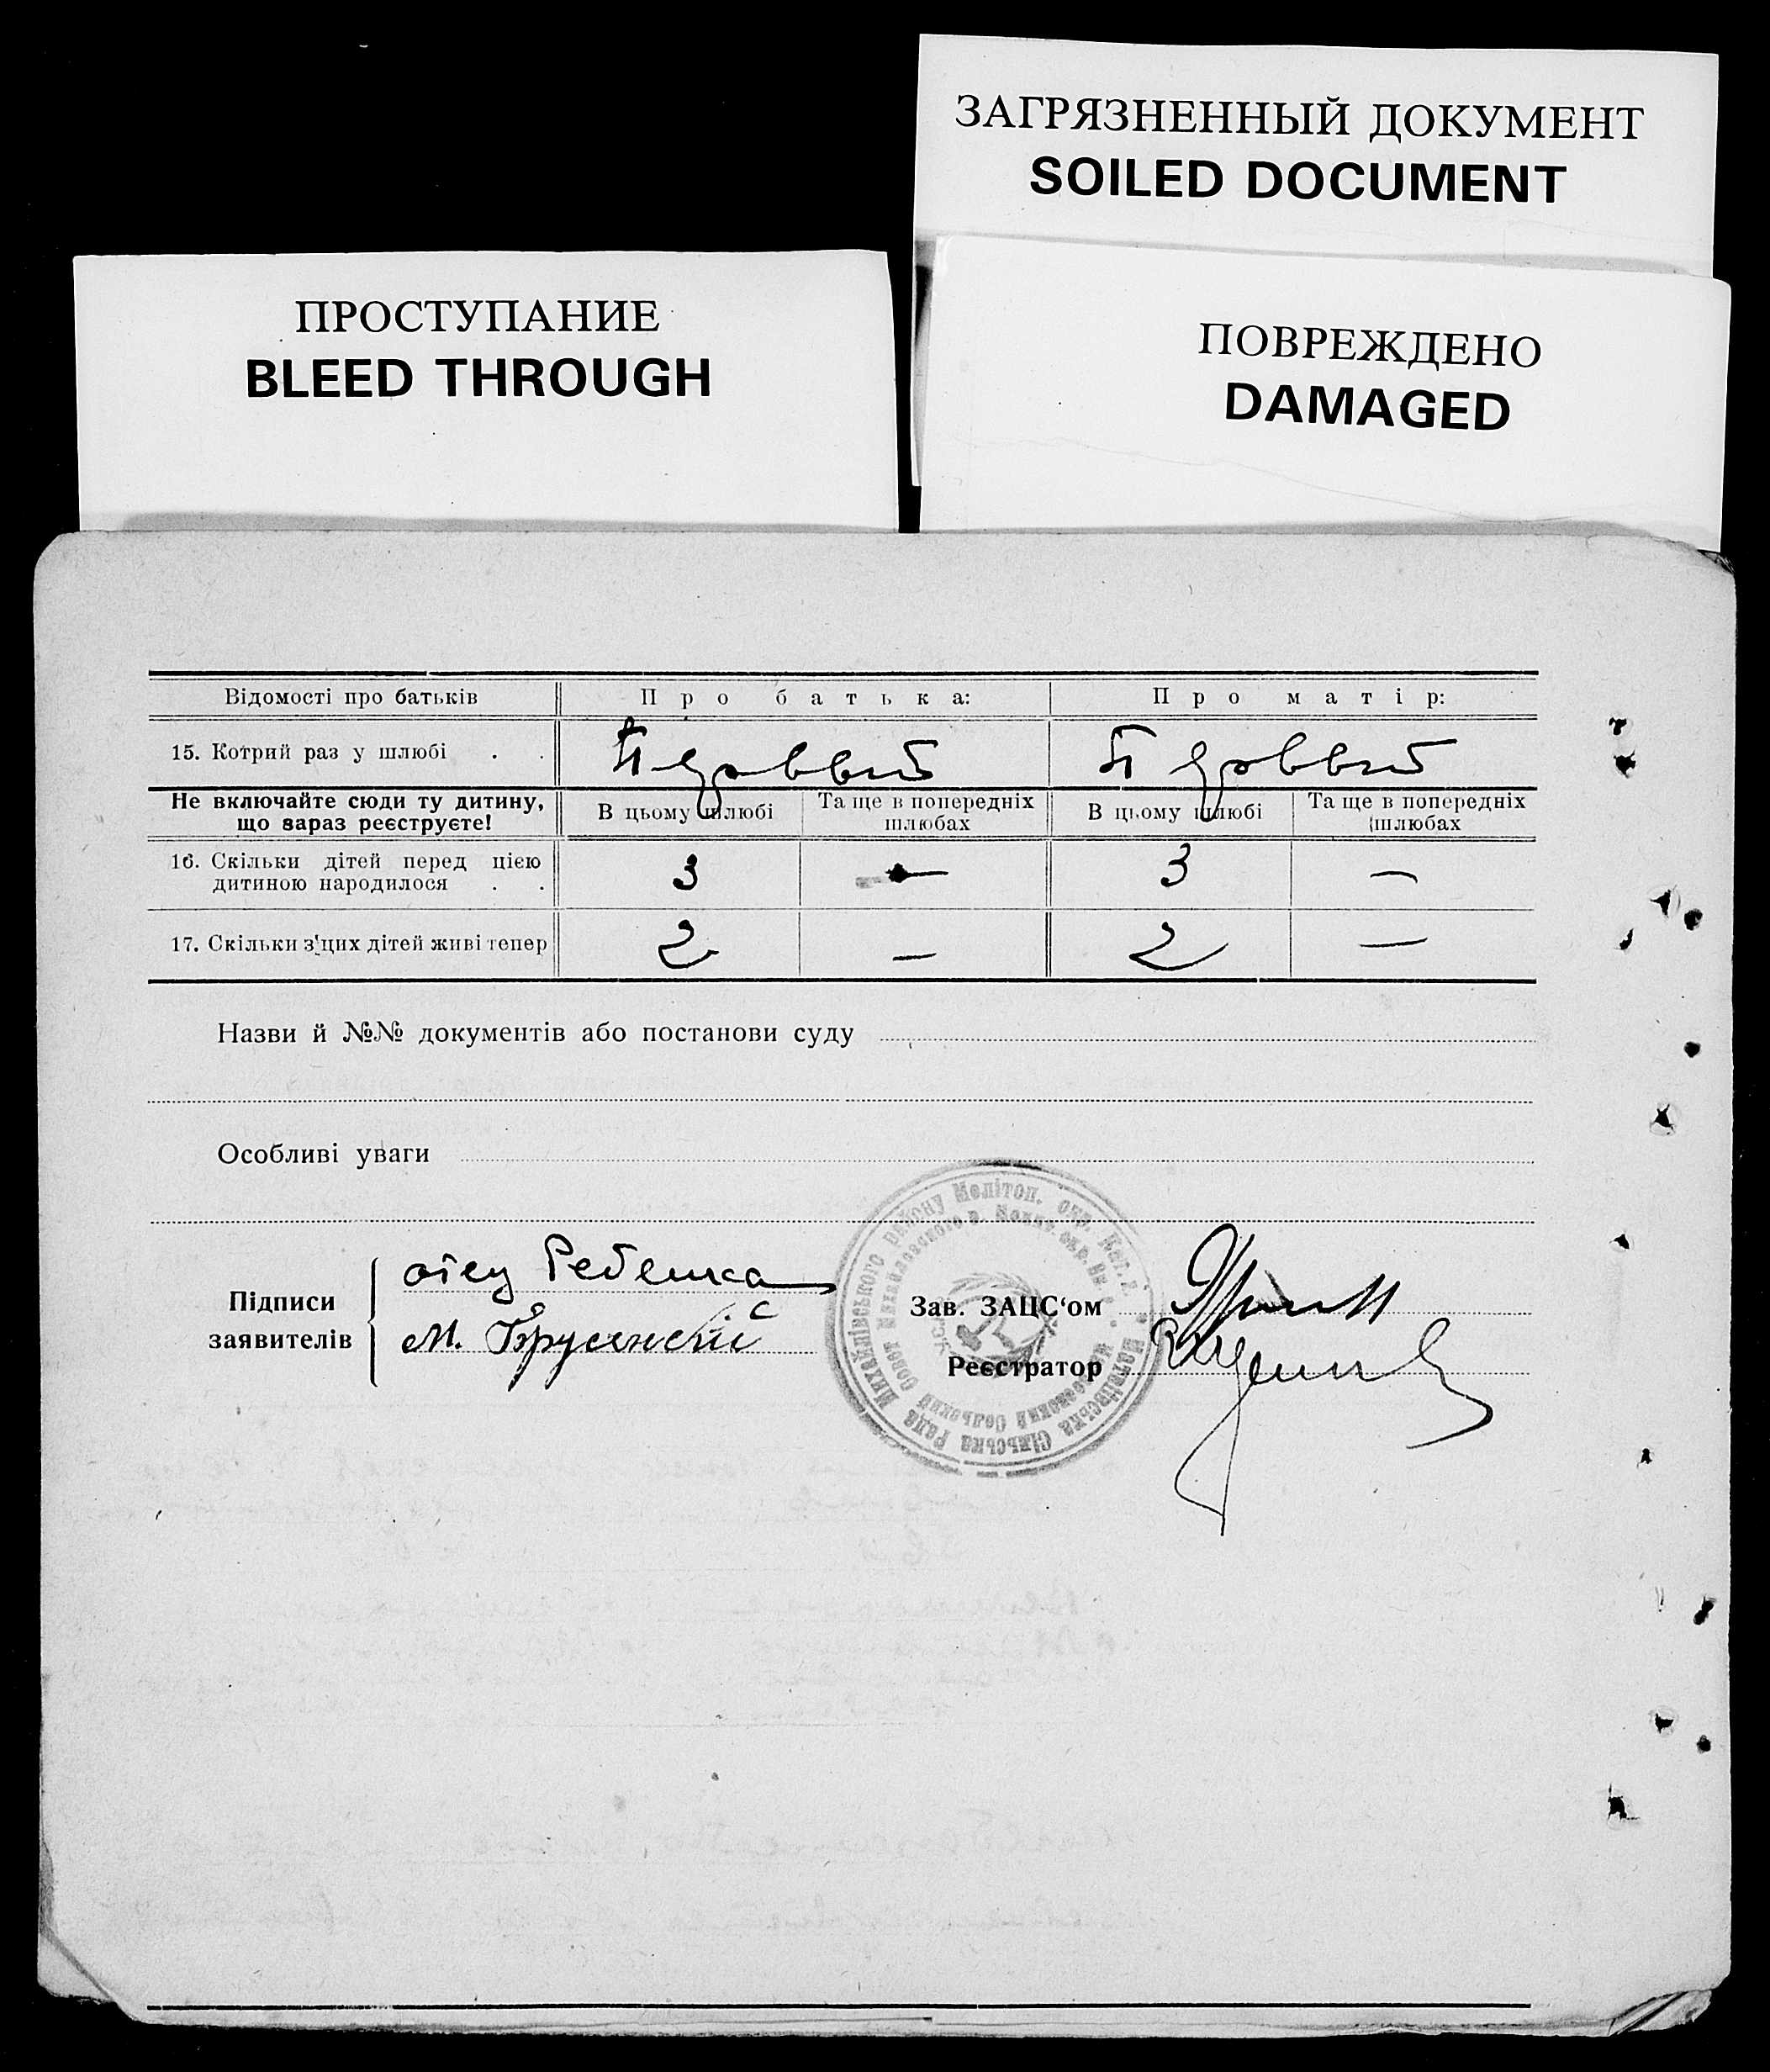 ЗАГРЯЗНЕННЫЙ ДОКУМЕНТ
SOILED DOCUMENT
ПРОСТУПАНИЕ
BLEED THROUGH
ПОВРЕЖДЕНО
DAMAGED
Відомості про батьків Про батька: Про матір:
15. Котрий раз у шлюбі . . Первый Первый
Не включайте сюди ту дитину, що зараз реєструєте! В цьому шлюбі Та ще в попередніх шлюбах В цьому шлюбі Та ще в попередніх шлюбах
16. Скільки дітей перед цією дитиною народилося . . 3 — 3 —
17. Скільки з'цих дітей живі тепер 2 — 2 —
Назви й №№ документів або постанови суду
Особливі уваги
Підписи заявителів
отец Ребенка
М.
Зав. ЗАЦС'ом
Реєстратор
Сільська Рада Михайлівського району Мелітоп. окр.